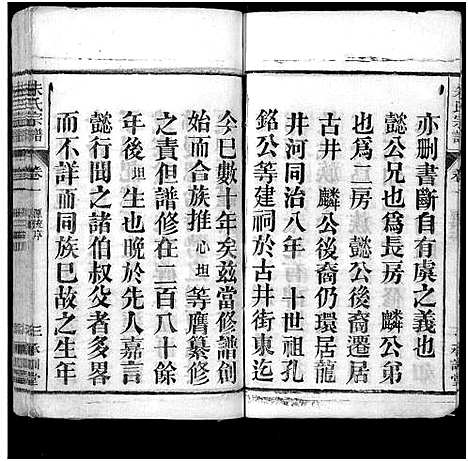 亦刪書斷自有虞之義也
懿公兄也爲長房 麟公弟
也爲二房 懿公後裔遷居
古井 麟公後裔仍環居龍
井河同治八年 十世祖孔
銘公等建祠於古井街東迄
今巳數十年矣茲當修譜創
始而合族推 心坦 等膺纂修
之責但譜修在二百八十餘
年後 坦 生也晚於先人嘉言
懿行聞之諸伯叔父者多畧
而不詳而同族巳故之生年
朱氏宗譜
卷一